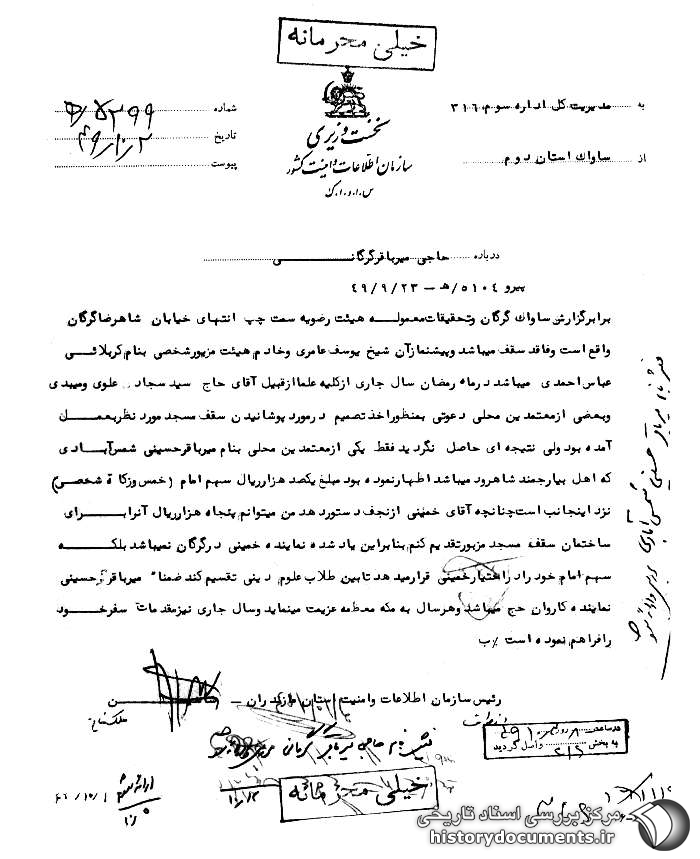 خیلی محرمانه
به مدیریت کل اداره سوم ۳۱۶
از ساواک استان دوم
نخست وزیری
سازمان اطلاعات و امنیت کشور
س.ا.و.ا.ک
شماره
تاریخ ۴۹/۱۰/۲
پیوست
درباره حاجی میرباقرگرگانی
پیرو ۵۱۰۴/ه‍ - ۴۹/۹/۲۳
برابرگزارش ساواک گرگان وتحقیقات معموله هیئت رضویه سمت چپ انتهای خیابان شاهرضاگرگان
واقع است وفاقد سقف میباشد وپیشنمازآن شیخ یوسف عامری وخادم هیئت مزبورشخصی بنام کربلائی
عباس احمدی میباشد درماه رمضان سال جاری ازکلیه علمااز قبیل آقای حاج سید سجاد علوی ومیبدی
وبعضی ازمعتمدین محلی دعوتی بمنظوراخذ تصمیم درمورد پوشانیدن سقف مسجد مورد نظربعمل
آمده بود ولی نتیجه ای حاصل نگردید فقط یکی ازمعتمدین محلی بنام میرباقرحسینی شمس آبادی
که اهل بیارجمند شاهرود میباشد اظهارنموده بود مبلغ یکصد هزارریال سهم امام (خمس وزکاة شخصی)
نزد اینجانب است چنانچه آقای خمینی ازنجف دستورد هد من میتوانم پنجاه هزارریال آنرابرای
ساختمان سقف مسجد مزبورتقدیم کنم بنابراین یاد شده نماینده خمینی درگرگان نمیباشد بلکه
سهم امام خود رادراختیارخمینی قرارمید هد تابین طلاب علوم دینی تقسیم کند ضمنا" میرباقرحسینی
نماینده کاروان حج میباشد وهرسال به مکه معظمه عزیمت مینماید وسال جاری نیزمقدمات سفرخود
رافراهم نموده است ٪ ب
رئیس سازمان اطلاعات وامنیت استان مازندران –
به بخش ۳۱۶ واصل گردید
خیلی محرمانه
مرکز بررسی اسناد تاریخی
historydocuments.ir